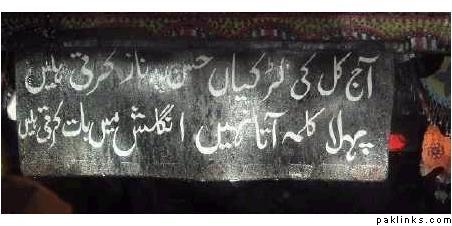 آج کل کی لڑکیاں حسن پہ ناز کرتی ہیں
پہلا کلمہ آتا نہیں انگلش میں بات کرتی ہیں
paklinks.com